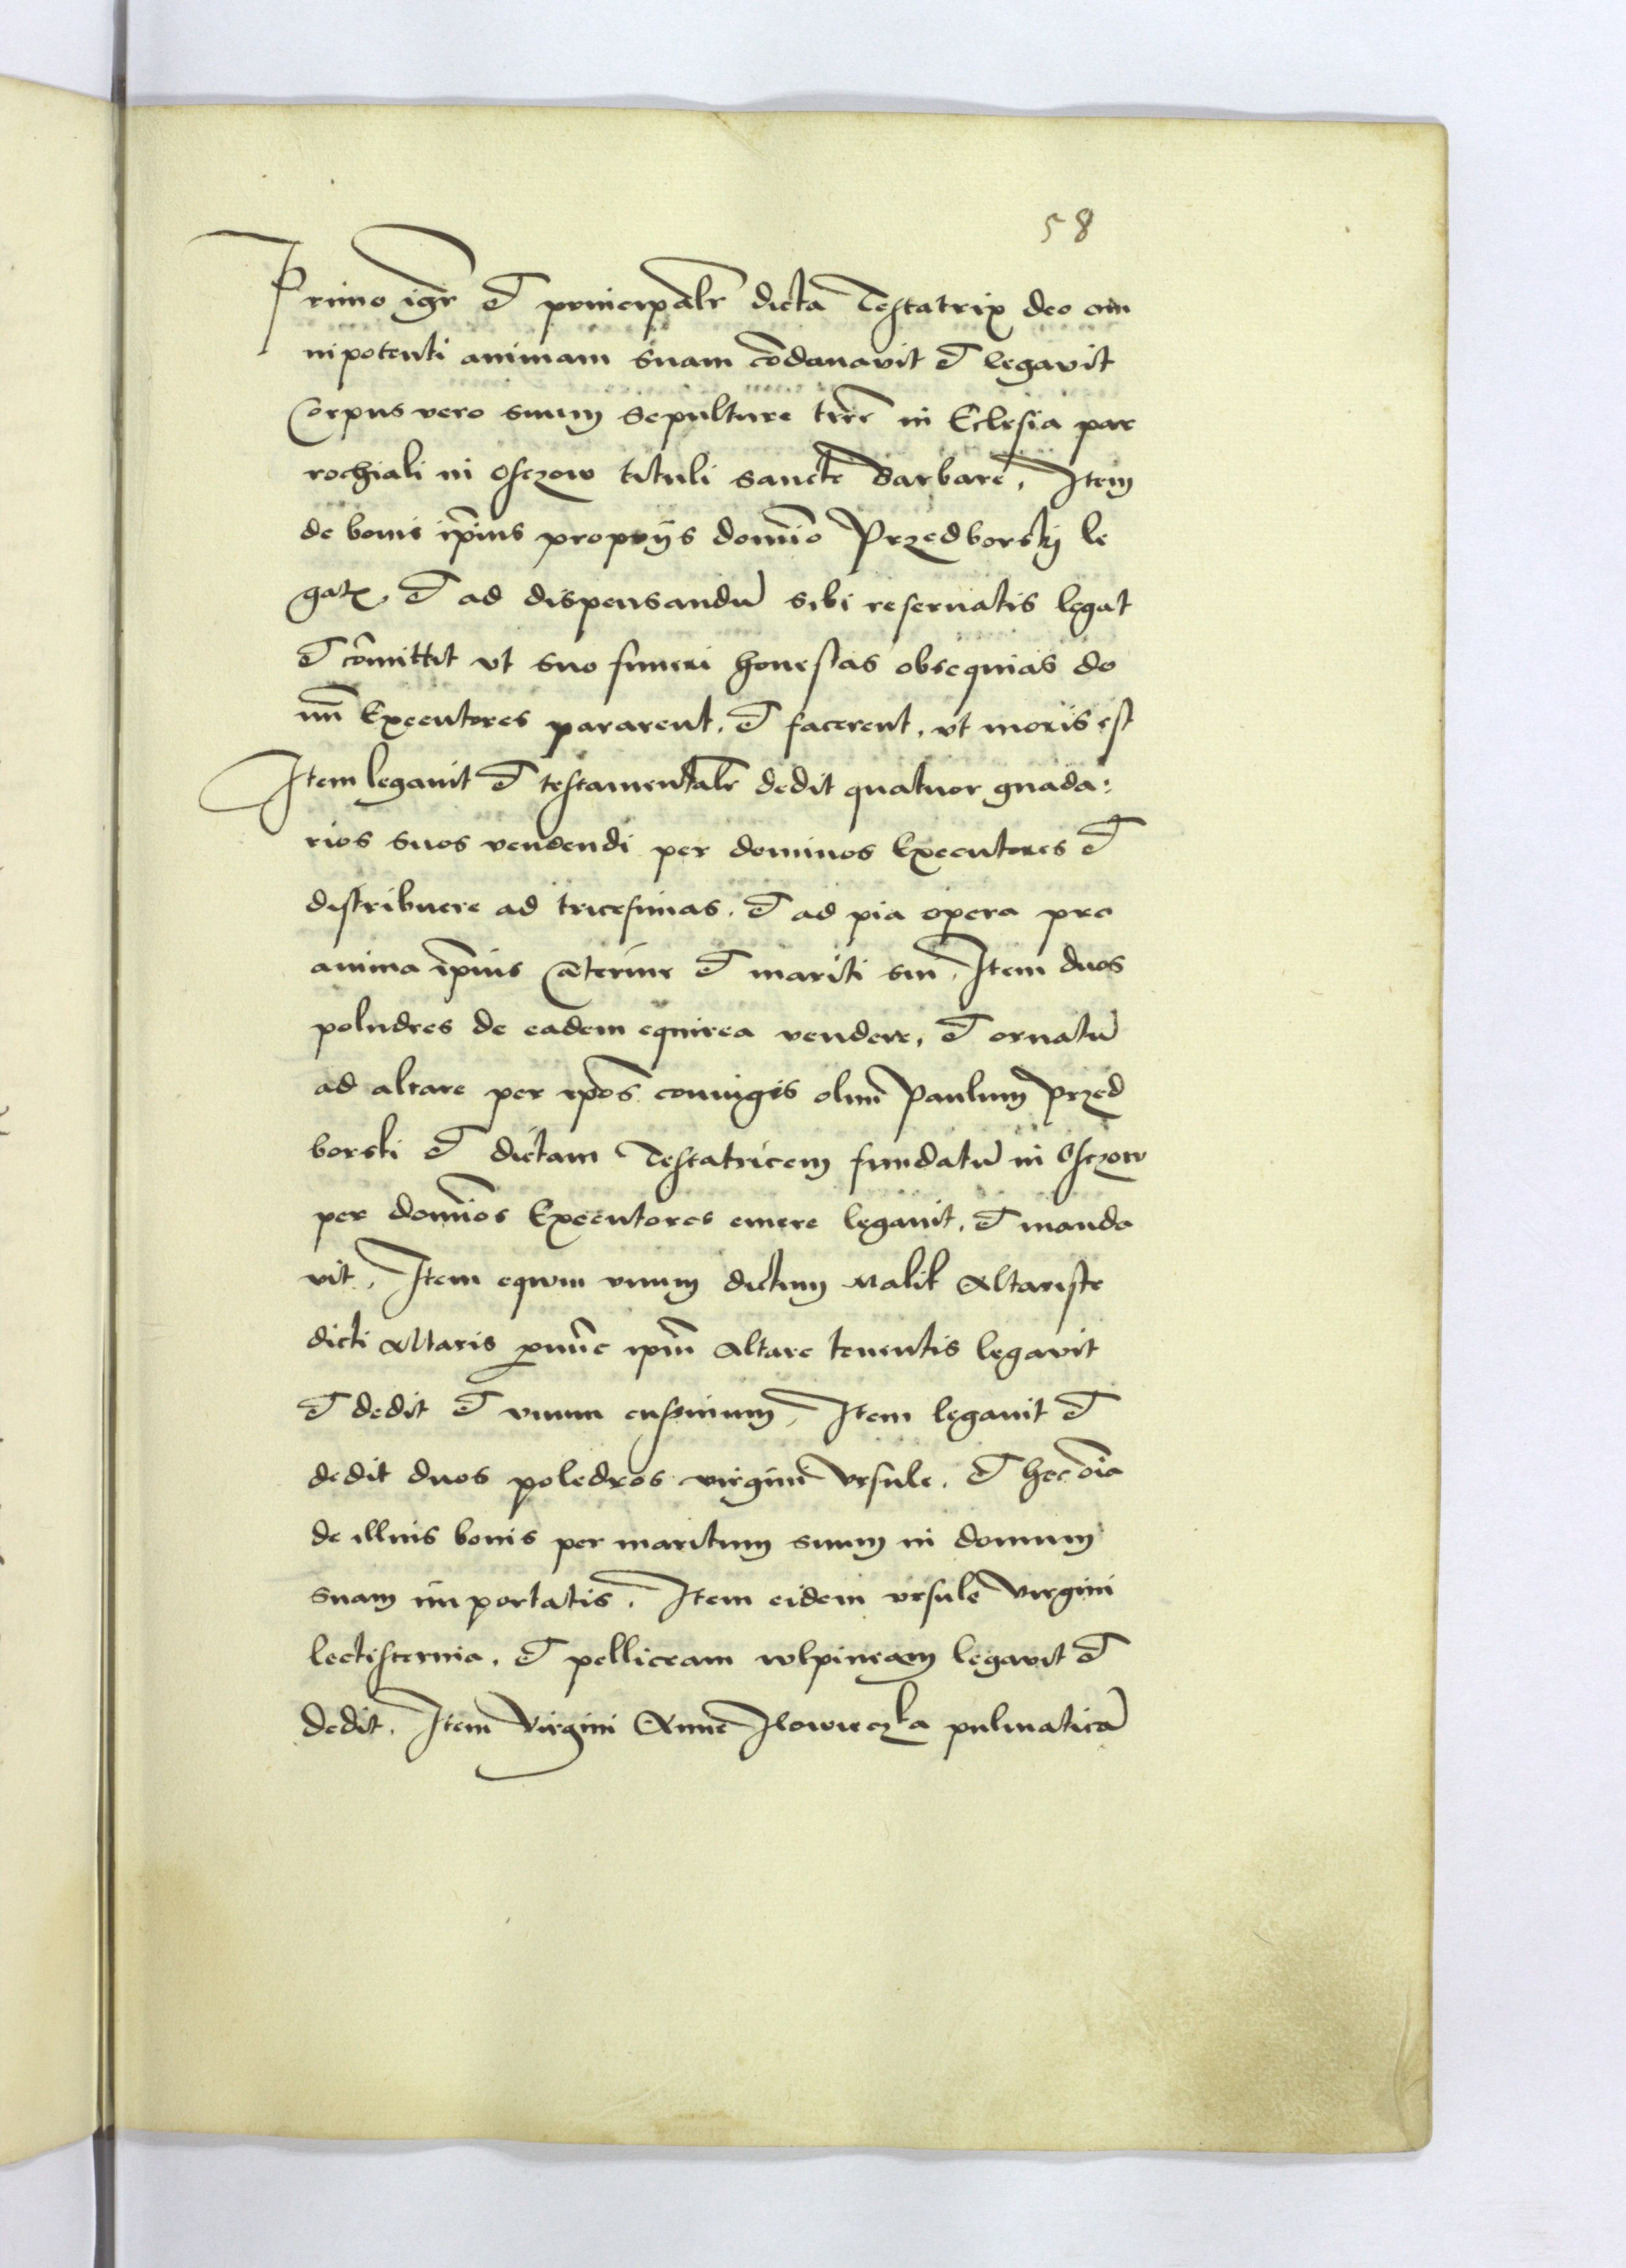 58
Primo igr̃ et principalr̃ dicta Testatrix deo om
nipotenti animam suam cõdonavit et legavit
Corpus vero suum sepulture trr̃e in Eclesia par
rochiali in Osczow tituli sancte Barbare, Item
de bonis ip̃ius propriis domĩo Przedborskÿ le
gat. et ad dispensandũ sibi reseruatis legat
et cõmittit vt suo funeri honestas obsequias do
mĩ Executores pararent, et facerent, vt moris est
Item legauit et testamentalr̃ dedit quatuor gnada:
rios suos vendendi per dominos Executores et
distribuere ad tricesimas. et ad pia opera pro
anima ip̃ius Caterine et mariti sui, Item duos
poludres de eadem equirea vendere, et ornatũ
ad altare per ip̃os coniugis olim Paulum Przed
borski et dictam Testatricem fundatũ in Osczow
per domĩos Executores emere legauit, et manda
vit, Item equum vnum dictum Malik Altariste
dicti Altaris ip̃m altare tenentis legavit
et dedit et vnum Item legauit et
dedit duos poledros virgini Vrsule. et hec oĩa
de illius bonis per maritum suum in domum
suam importatis, Item eidem vrsule virgini
lectisternia, et pelliceam wlpineam legavit et
dedit, Item Virgini Anne Ilowieczka pulmaticã